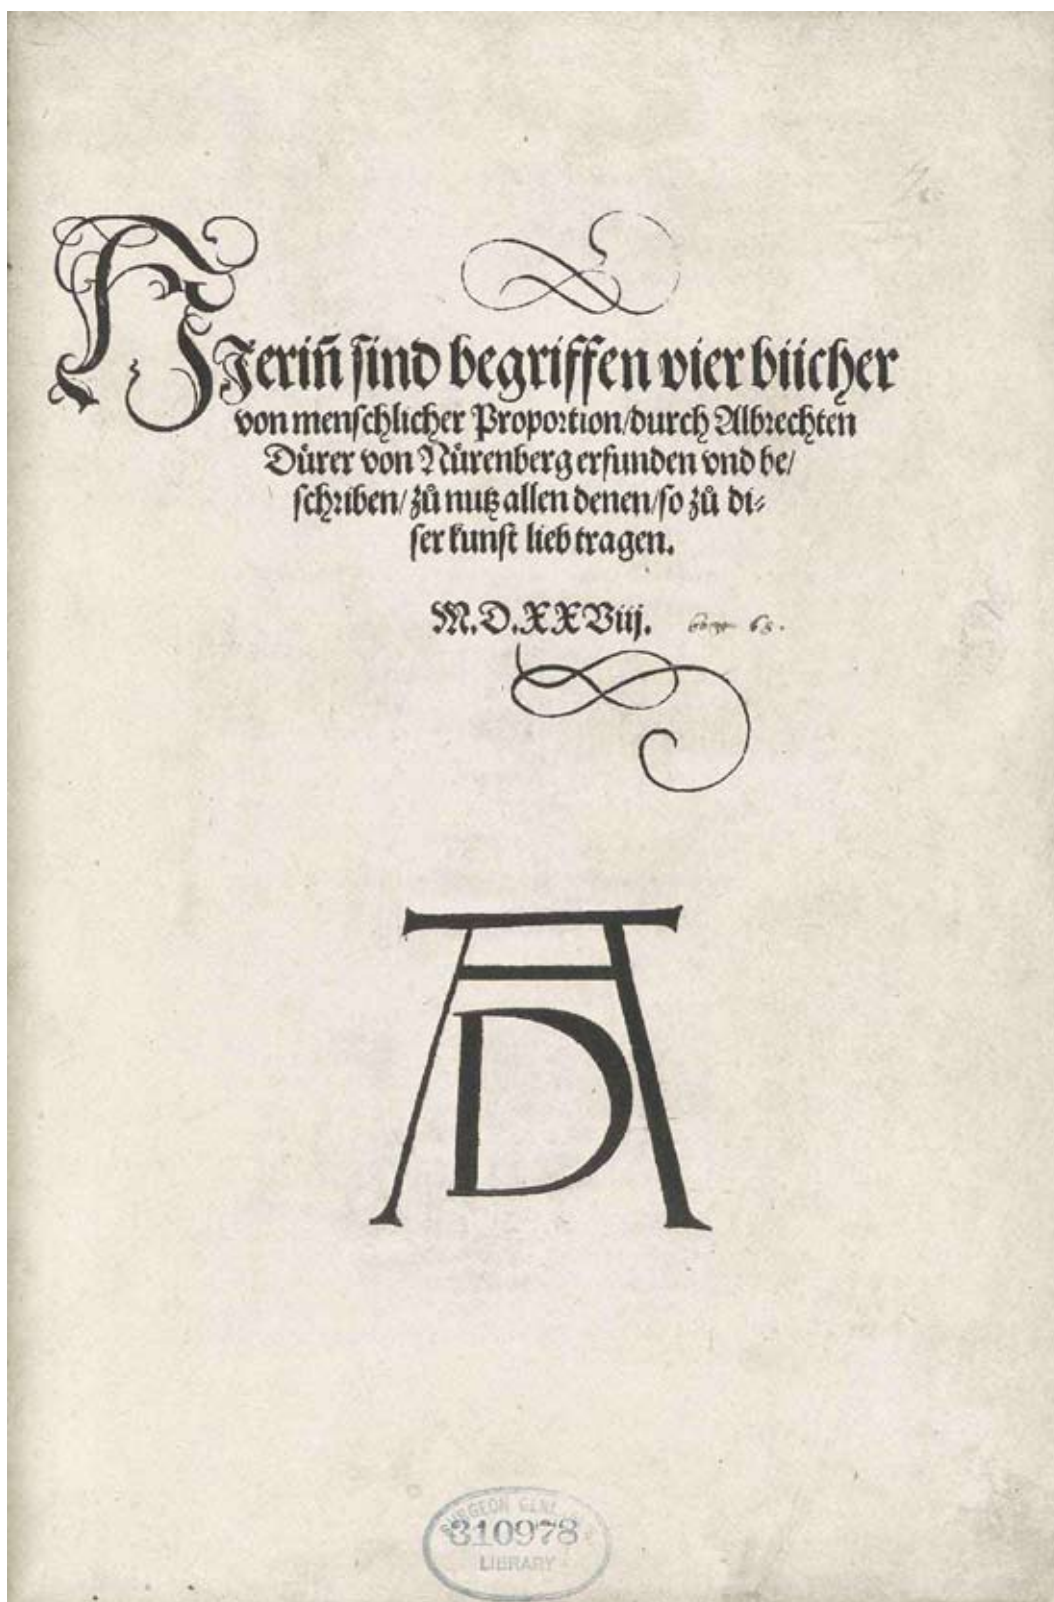 HJeriñ sind begriffen vier bücher
von menschlicher Proportion/durch Albrechten
Dürer von Nürenberg erfunden vnd be/
schriben/zů nutz allen denen/so zů di-
ser kunst lieb tragen.
M.D.XXViij.
AD
SURGEON GENL
310978
LIBRARY